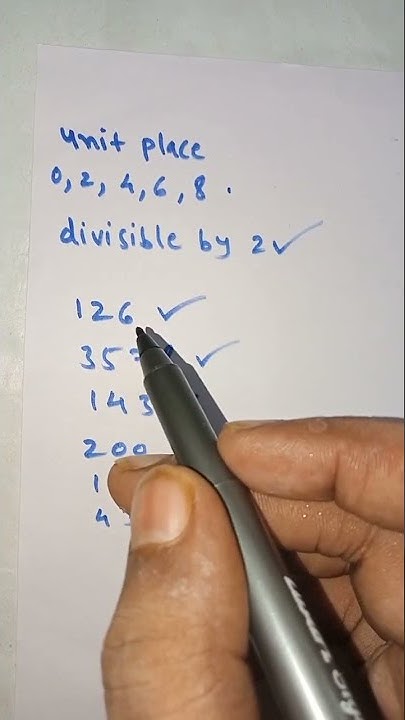 unit place
0, 2, 4, 6, 8 .
divisible by 2 ✓
126 ✓
35 ✓
143
200
1
4